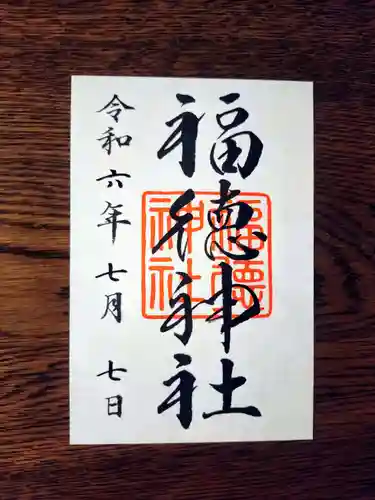 福徳神社
令和六年七月七日
福徳神社